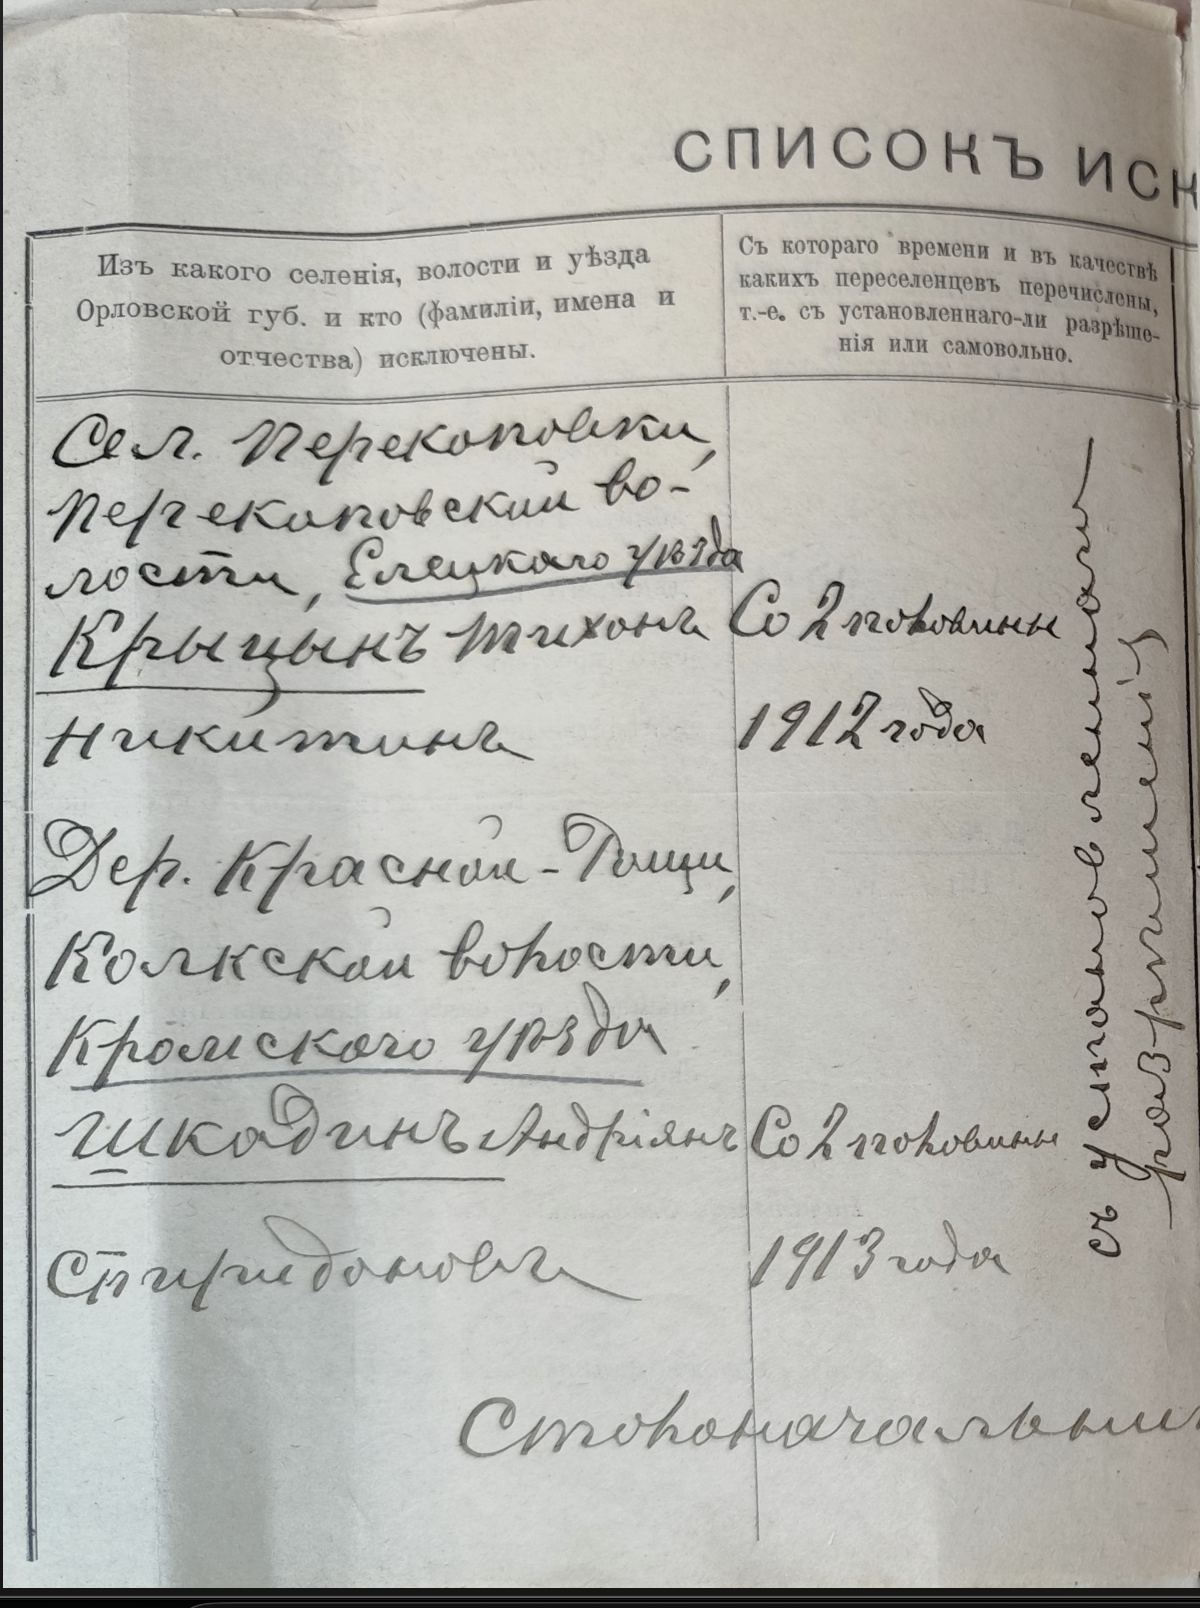 СПИСОКЪ ИСК
Изъ какого селенія, волости и уѣзда
Орловской губ. и кто (фамиліи, имена и
отчества) исключены.
Съ котораго времени и въ качествѣ
какихъ переселенцевъ перечислены,
т.-е. съ установленнаго-ли разрѣше-
нія или самовольно.
Сел. Перекоповки,
Перекоповской во-
лости, Елецкаго уѣзда
Крыцынъ Тихонъ
Никитинъ
Со 2 половины
1912 года
Дер. Красной-Рощи,
Колкской волости,
Кромского уѣзда
Шкадинъ Андріянъ
Спиридоновъ
Со 2 половины
1913 года
съ установленнаго
разрѣшенія
Столоначальни